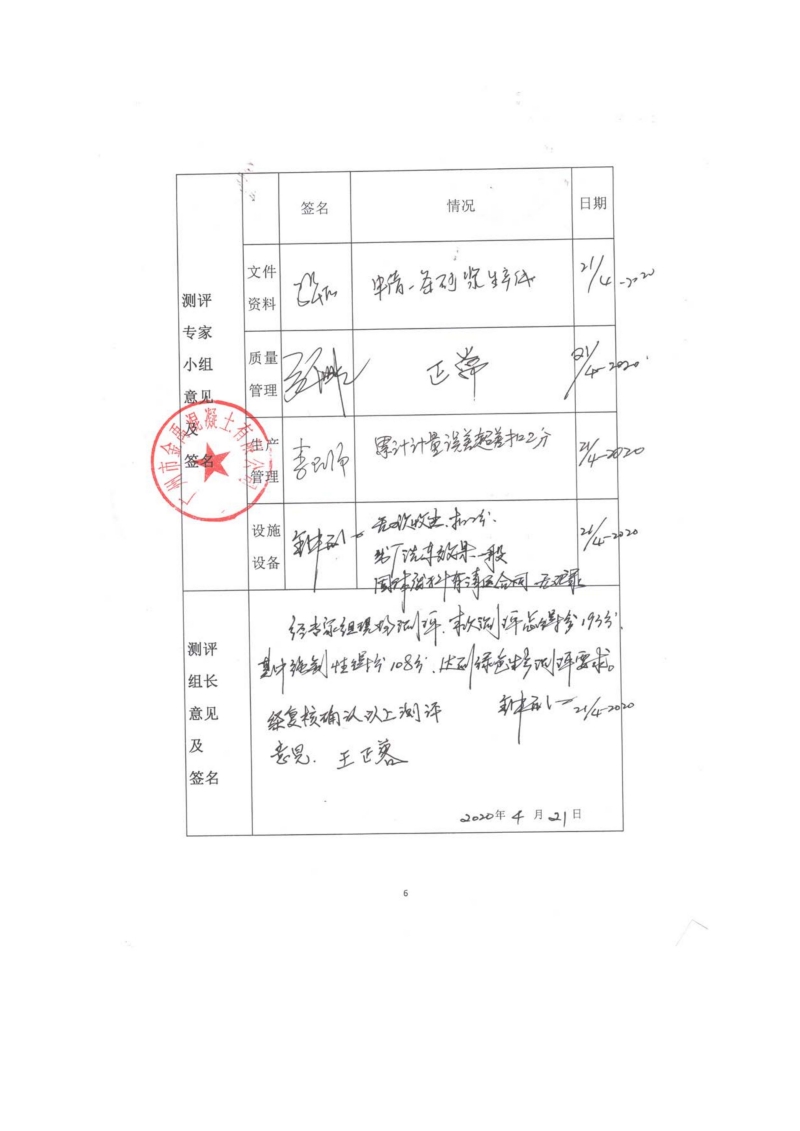 签名 情况 日期
测评
专家
小组
意见
及
签名
文件
资料
申请一条砂浆生产线
21/4-2020
质量
管理
正常
21/4-2020
生产
管理
累计计量误差超差扣2分
21/4-2020
设施
设备
扣2分.
出厂洗车效果一般
21/4-2020
广州市金禹混凝土有限公司
测评
组长
意见
及
签名
经专家组现场测评,本次测评总得分193分,
其中强制性得分108分,达到绿色生产测评要求。
21/4-2020
经复核确认以上测评
意见.
2020年4月21日
6